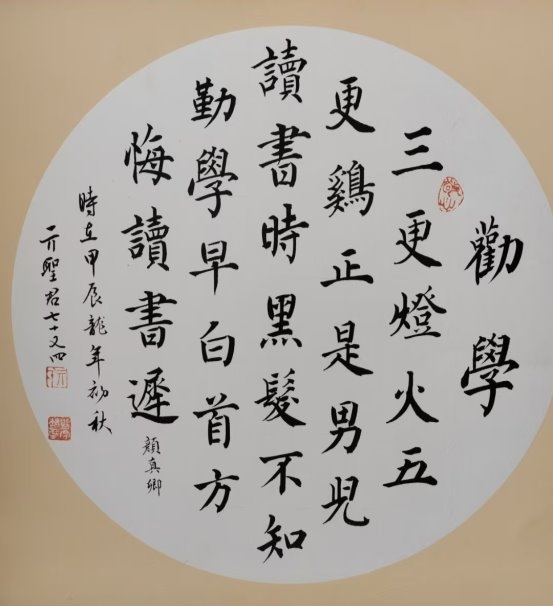 勸學
三更燈火五
更鷄正是男兒
讀書時黑髮不知
勤學早白首方
悔讀書遲
顏真卿
時在甲辰龍年初秋
亓聖君七十又四